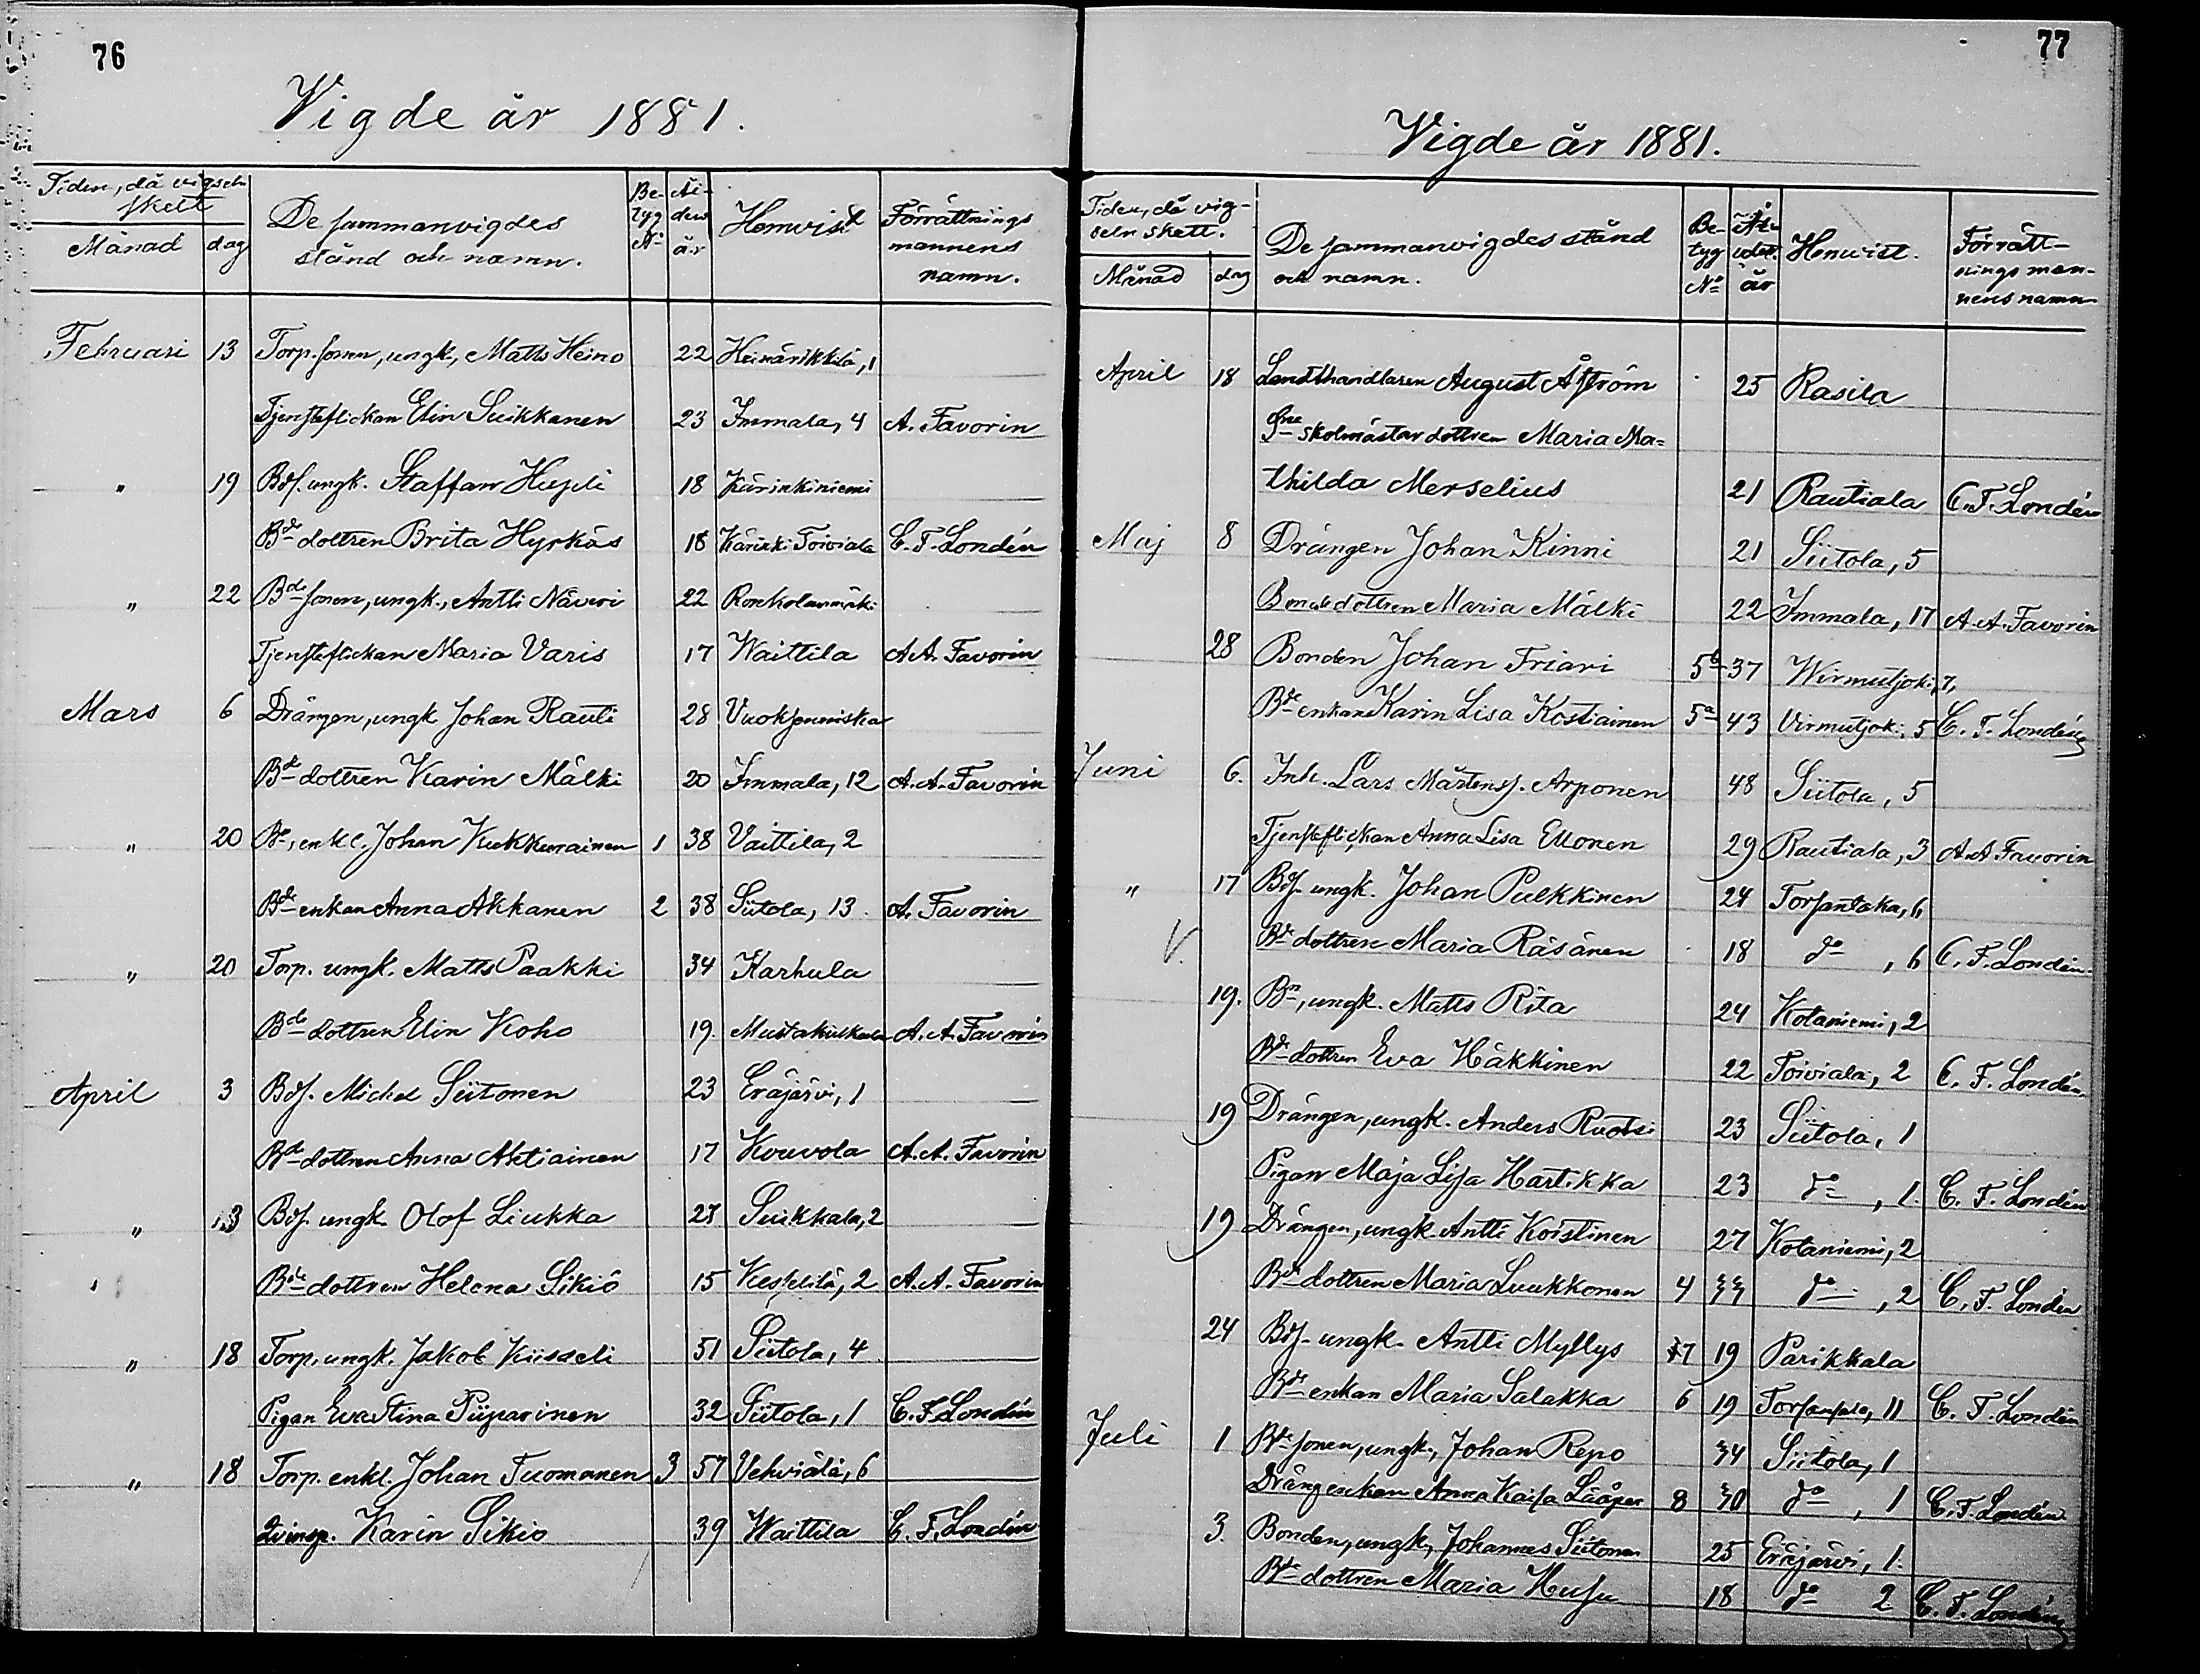 76
Vigde år 1881.
Tiden, då vigseln skett
Månad dag
De sammanvigdes stånd och namn.
Betyg No
Ålder år
Hemvist
Förrättningsmannens namn.
Februari 13 Torp.sonen, ungk., Matts Heino 22 Heinärikkilä, 1
Tjensteflickan Elin Suikkanen 23 Immala, 4 A. Favorin
" 19 Bds. ungk. Staffan Hupli 18 Kärinkiniemi
Bde dottren Brita Hyrkäs 18 Käriski Toiviala C. F. Londén
" 22 Bde sonen, ungk., Antti Näveri 22 Ronkolanmäki
Tjensteflickan Maria Varis 17 Waittila A.A. Favorin
Mars 6 Drängen, ungk Johan Rauti 28 Vuoksenniska
Bde dottren Karin Mälki 20 Immala, 12 A. A. Favorin
" 20 Bn, enkl. Johan Kukkurainen 1 38 Vaittila, 2
Bde enkan Anna Akkanen 2 38 Siitola, 13. A. Favorin
" 20 Torp. ungk. Matts Paakki 34 Karhula
Bde dottren Elin Koho 19. A. A. Favorin
April 3 Bds. Michel Siitonen 23 Eräjärvi, 1
Bde dottren Anna Ahtiainen 17 Kouvola A. A. Favorin
" 13 Bds. ungk. Olof Liukka 27 Suikkala, 2
Bde dottren Helena Sikiö 15 Keskilä, 2 A. A. Favorin
" 18 Torp. ungk. Jakob Kiisseli 51 Siitola, 4
Pigan Eva Stina Piiparinen 32 Siitola, 1 C. F. Londén
" 18 Torp. enkl. Johan Tuomanen 3 57 Vehviälä, 6
Qvinsp. Karin Sikiö 39 Waittila C. F. Londén
77
Vigde år 1881.
Tiden, då vigseln skett.
Månad dag
De sammanvigdes stånd och namn.
Betyg No
Ålder år
Hemvist.
Förrättningsmannens namn
April 18 Landthandlaren August Åström 25 Rasila
skolmästardottren Maria Ma=
thilda Merselius 21 Rautiala C. F. Londén
Maj 8 Drängen Johan Kinni 21 Siitola, 5
Bondedottren Maria Mälki 22 Immala, 17 A. A. Favorin
28 Bonden Johan Friari 5b 37 Wirmutjoki, 7,
Bde enkan Karin Lisa Kostiainen 5a 43 Virmutjoki, 5 C. F. Londén
Juni 6. Inh. Lars Mårtenss. Arponen 48 Siitola, 5
Tjensteflickan Anna Lisa Ellonen 29 Rautiala, 3 A. A. Favorin
" 17 Bds. ungk. Johan Pulkkinen 24 Torsantaka, 6,
V. Bde dottren Maria Räsänen 18 do, 6 C. F. Londén
19. Bn, ungk. Matts Rita 24 Kotaniemi, 2
Bde dottren Eva Häkkinen 22 Toiviala, 2 C. F. Londén
19 Drängen, ungk. Anders Ruotsi 23 Siitola, 1
Pigan Maja Lisa Hartikka 23 do, 1. C. F. Londén
19 Drängen, ungk. Antti Koistinen 27 Kotaniemi, 2
Bde dottren Maria Luukkonen 4 33 do, 2 C. F. Londén
24 Bds. ungk. Antti Myllys 7 19 Parikkala
Bde enkan Maria Salakka 6 19 C. F. Londén
Juli 1 Bde sonen, ungk., Johan Repo 34 Siitola, 1
Drängenkan Anna Kaisa Lääper 8 30 do, 1 C. F. Londén
3. Bonden, ungk., Johannes Siitonen 25 Eräjärvi, 1.
Bde dottren Maria Husu 18 do 2 C. F. Londén